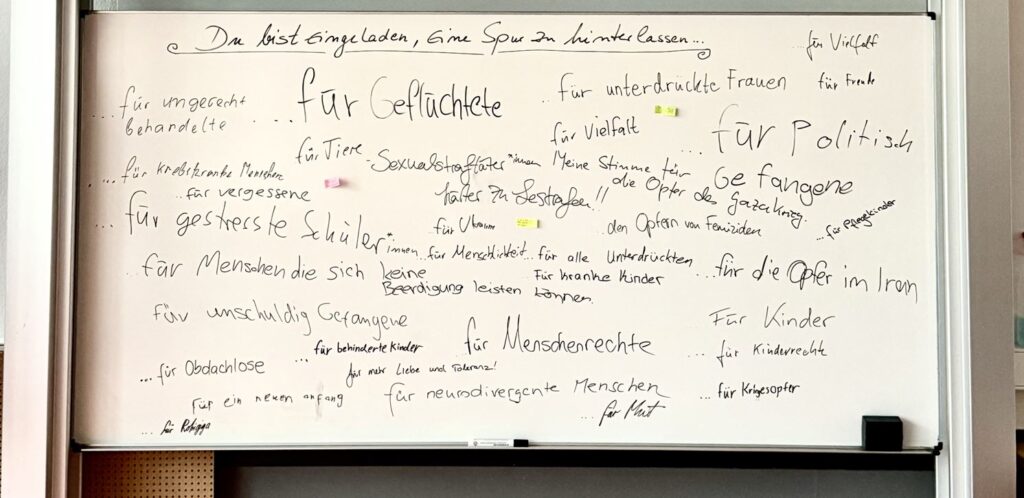 Du bist eingeladen, eine Spur zu hinterlassen...
...für Vielfalt
...für ungerecht
behandelte
...für Geflüchtete
...für unterdrückte Frauen
für Freude
für Vielfalt
...für Politisch
Gefangene
...für krebskranke Menschen
für Tiere
-Sexualstraftäter*innen
härter zu bestrafen!!
Meine Stimme für
die Opfer des Gazakrieg.
...für vergessene
...für gestresste Schüler*innen
...für Ukraine
...den Opfern von Femiziden
...für Pflegekinder
...für Menschlichkeit
...für alle Unterdrückten
...für Menschen die sich keine
Beerdigung leisten können.
Für kranke Kinder
...für die Opfer im Iran
für unschuldig Gefangene
Für Kinder
...für behinderte Kinder
für Menschenrechte
...für Kinderrechte
...für Obdachlose
für mehr Liebe und Toleranz!
für ein neuen anfang
für neurodivergente Menschen
...für Kriegsopfer
...für Mut
...für